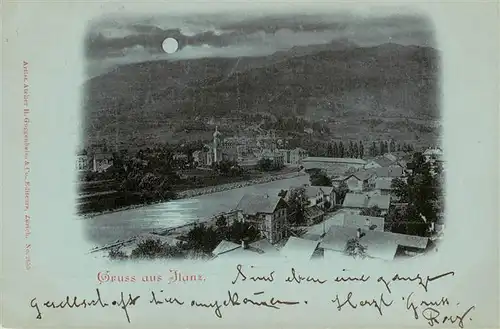 Artist. Atelier H. Guggenheim & Co., Editeurs, Zürich. No.
Gruss aus Ilanz.
Sind soeben eine ganze
Gesellschaft hier angekommen. Herzl. Gruss